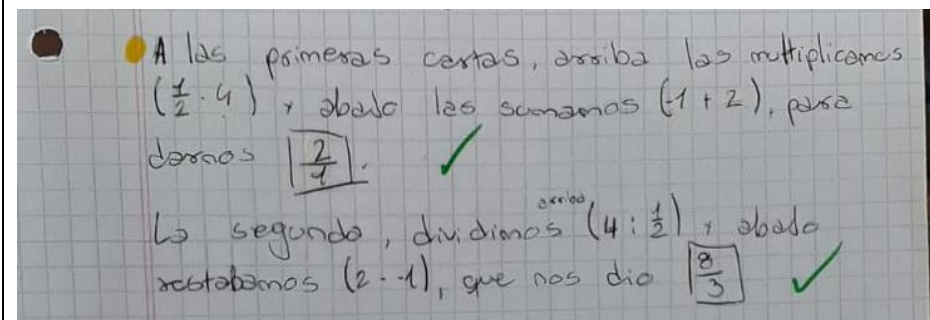 A las primeras cartas, arriba las multiplicamos
(1/2 · 4) y abajo las sumamos (-1 + 2), para
darnos 2/1.
La segunda, dividimos arriba (4 : 1/2) y abajo
restabamos (2 - -1), que nos dio 8/3